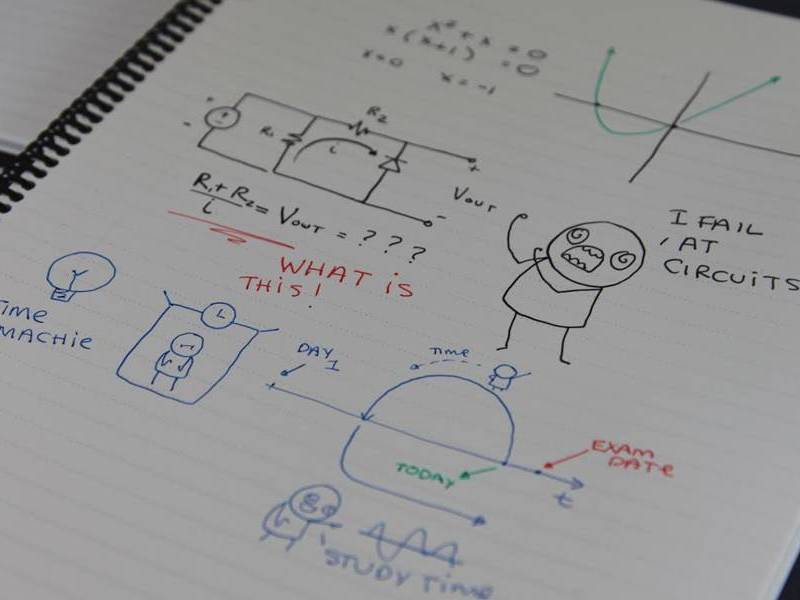 x² + x = 0
x(x+1) = 0
x=0 x=-1
+
-
R₁
R₂
i
+
-
VOUT
R₁+R₂/i = VOUT = ???
WHAT IS
THIS!
I FAIL
AT
CIRCUITS
TIME
MACHIE
DAY
1
TIME
TODAY
EXAM
DATE
t
STUDY TIME